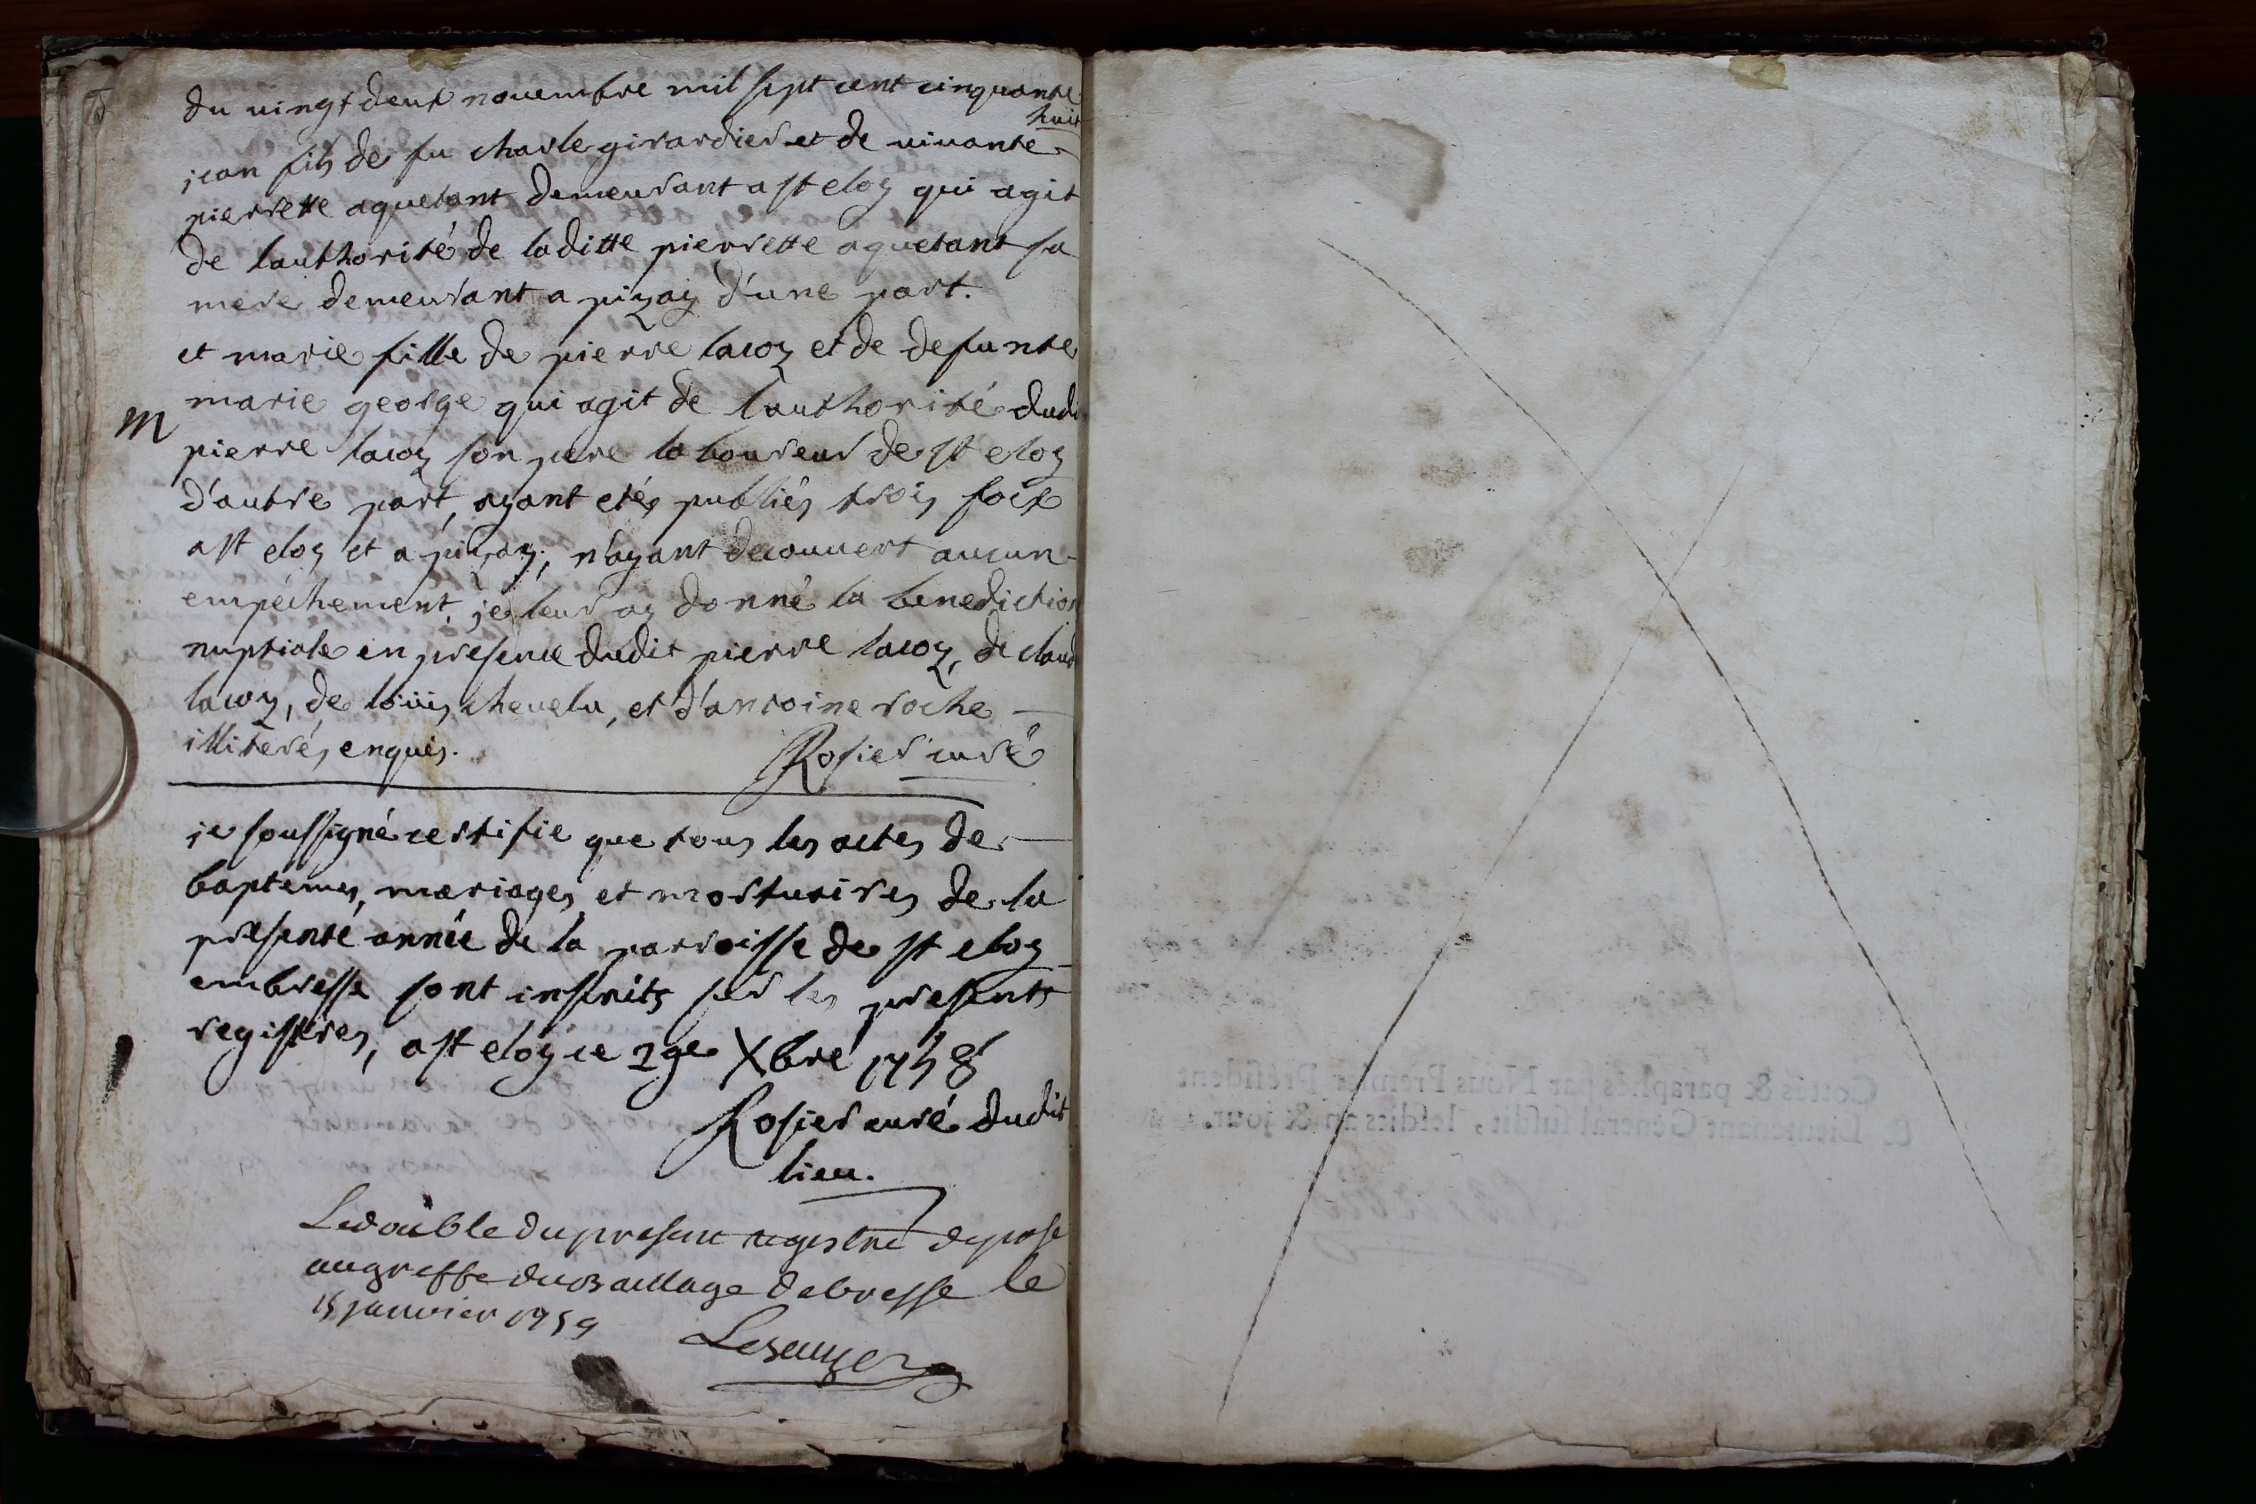 du vingt deux novembre mil sept cent cinquante
huit
jean fils de fu charle girardier et de vivante
pierrette aquetant demeurant a st eloy qui agit
de lauthorité de laditte pierrette aquetant sa
mere demeurant a pizay d'une part.
et marie fille de pierre lacoy et de defunte
marie george qui agit de l'authorité dudi
m
pierre lacoy son pere laboureur de st eloy
d'autre part, ayant etés publiés trois foix
a st eloy et a pizay; n'ayant decouvert aucun
empéchement, je leur ay donné la benediction
nuptiale en presence dudit pierre lacoy, de claud
lacoy, de loüis chevelu, et d'antoine roche
illiterés enquis.
Rosier curé
je soussigné certifie que tous les actes de
baptemes, mariages et mortuaires de la
presente année de la parroisse de st eloy
enbresse sont inscrits sur les presents
registres, a st eloy ce 29e Xbre 1758
Rosier curé dudit
lieu.
Le double du present registre depose
au greffe du Baillage de bresse le
15 janvier 1759
Cottés & paraphés par Nous Premier Président
& Lieutenant Général susdit, lesdits an & jour.